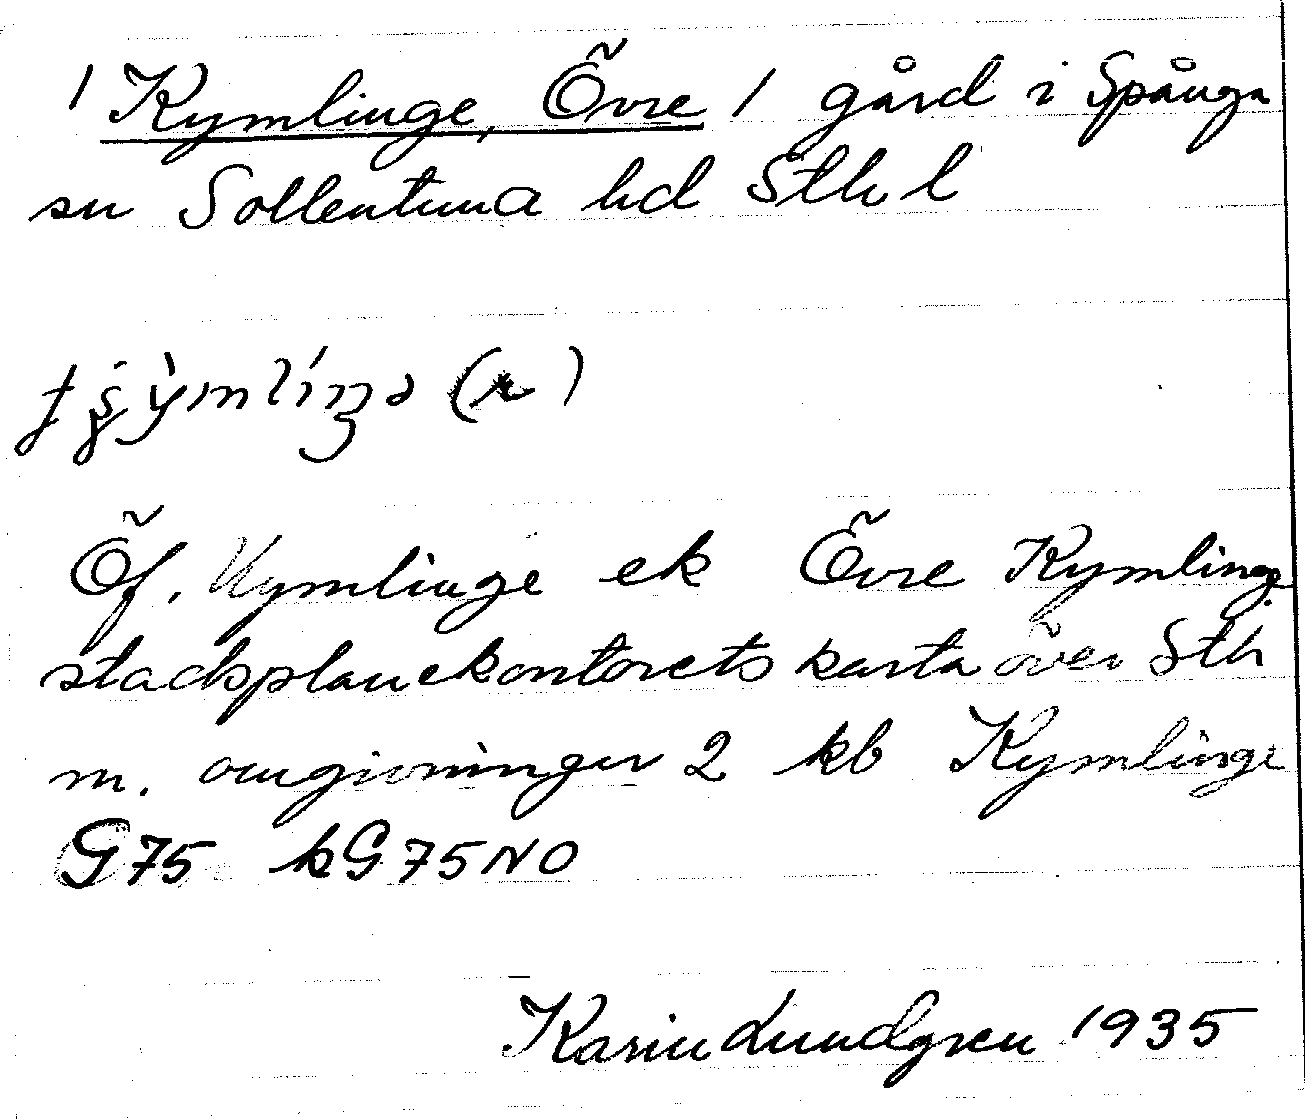 / Kymlinge, Övre / gård i Spånga
sn Sollentuna hd Sthl l
Öf. Kymlinge ek Övre Kymlinge
stadsplanekontorets karta över Sth
m. omgivningar 2 kb Kymlinge
G75 kG75NO
Karin Lundgren 1935